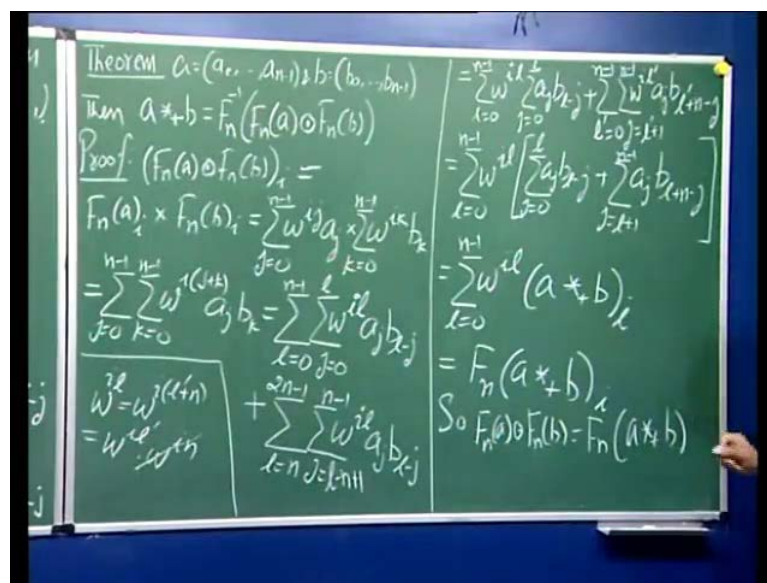 Theorem a=(a₀,..,aₙ₋₁), b=(b₀,...,bₙ₋₁)
Then a*₊b = Fₙ⁻¹(Fₙ(a)⊙Fₙ(b))
Proof: (Fₙ(a)⊙Fₙ(b))ᵢ =
Fₙ(a)ᵢ × Fₙ(b)ᵢ = ∑_{j=0}^{n-1} w^{ij} a_j × ∑_{k=0}^{n-1} w^{ik} b_k
= ∑_{j=0}^{n-1} ∑_{k=0}^{n-1} w^{i(j+k)} a_j b_k = ∑_{l=0}^{n-1} ∑_{j=0}^{l} w^{il} a_j b_{l-j}
+ ∑_{l=n}^{2n-1} ∑_{j=l-n+1}^{n-1} w^{il} a_j b_{l-j}
w^{il} = w^{i(l'+n)}
= w^{il'} · w^{in}
= ∑_{l=0}^{n-1} w^{il} ∑_{j=0}^{l} a_j b_{l-j} + ∑_{l'=0}^{n-1} ∑_{j=l'+1}^{n-1} w^{il'} a_j b_{l'+n-j}
= ∑_{l=0}^{n-1} w^{il} [ ∑_{j=0}^{l} a_j b_{l-j} + ∑_{j=l+1}^{n-1} a_j b_{l+n-j} ]
= ∑_{l=0}^{n-1} w^{il} (a*₊b)_l
= Fₙ(a*₊b)ᵢ
So Fₙ(a)⊙Fₙ(b) = Fₙ(a*₊b)